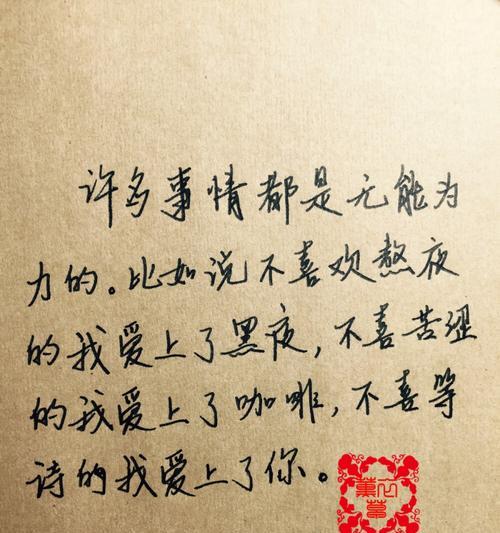 许多事情都是无能为
力的。比如说不喜欢熬夜
的我爱上了黑夜，不喜苦涩
的我爱上了咖啡，不喜等
待的我爱上了你。
薰衣草